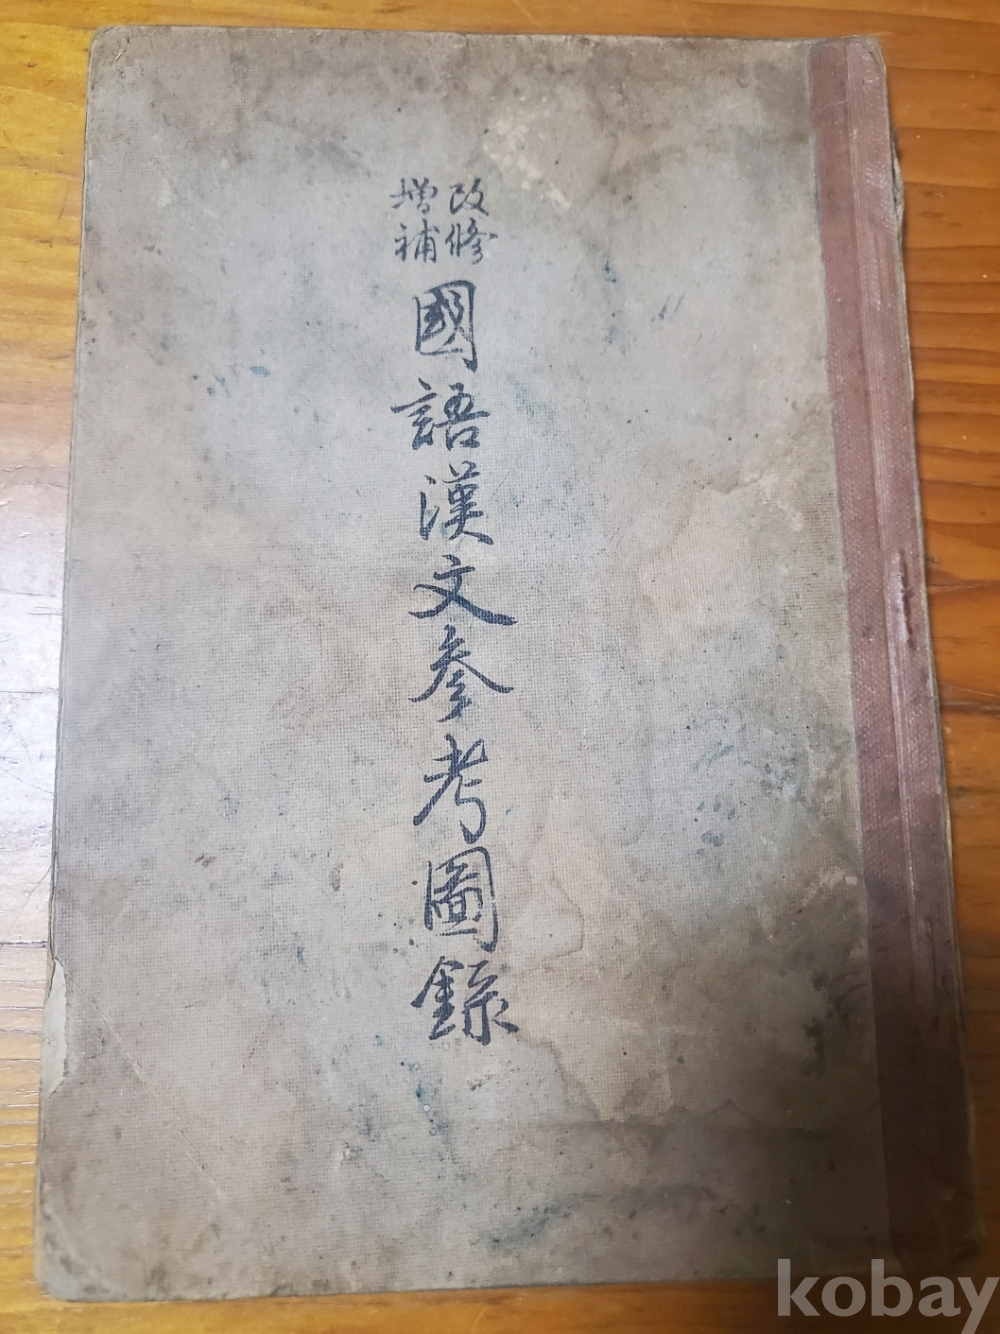 改修
增補
國語漢文參考圖錄
kobay